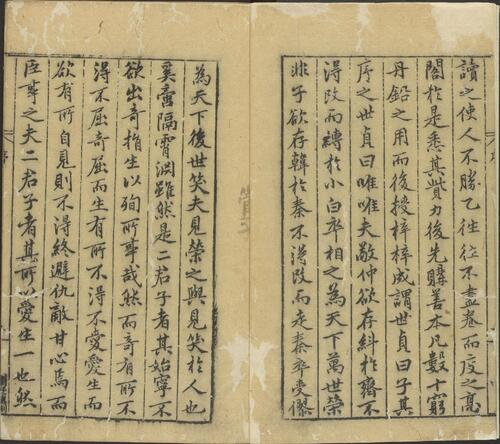 讀之使人不勝乙往往不盡卷而度之高
閣於是悉其貲力後先購善本凡數十窮
丹鉛之用而後授梓梓成謂世貞曰子其
序之世貞曰唯唯夫敬仲欲存糾於齊不
得改而縛於小白卒相之為天下萬世榮
非子欲存韓於秦不得改而走秦卒受僇
為天下後世笑夫見榮之與見笑於人也
奚啻隔霄淵雖然是二君子者其始寧不
欲出奇捐生以殉所事哉然而奇有所不
得不屈奇屈而生有所不得不愛愛生而
欲有所自見則不得終避仇敵甘心焉而
臣事之夫二君子者其所以愛生一也然
序